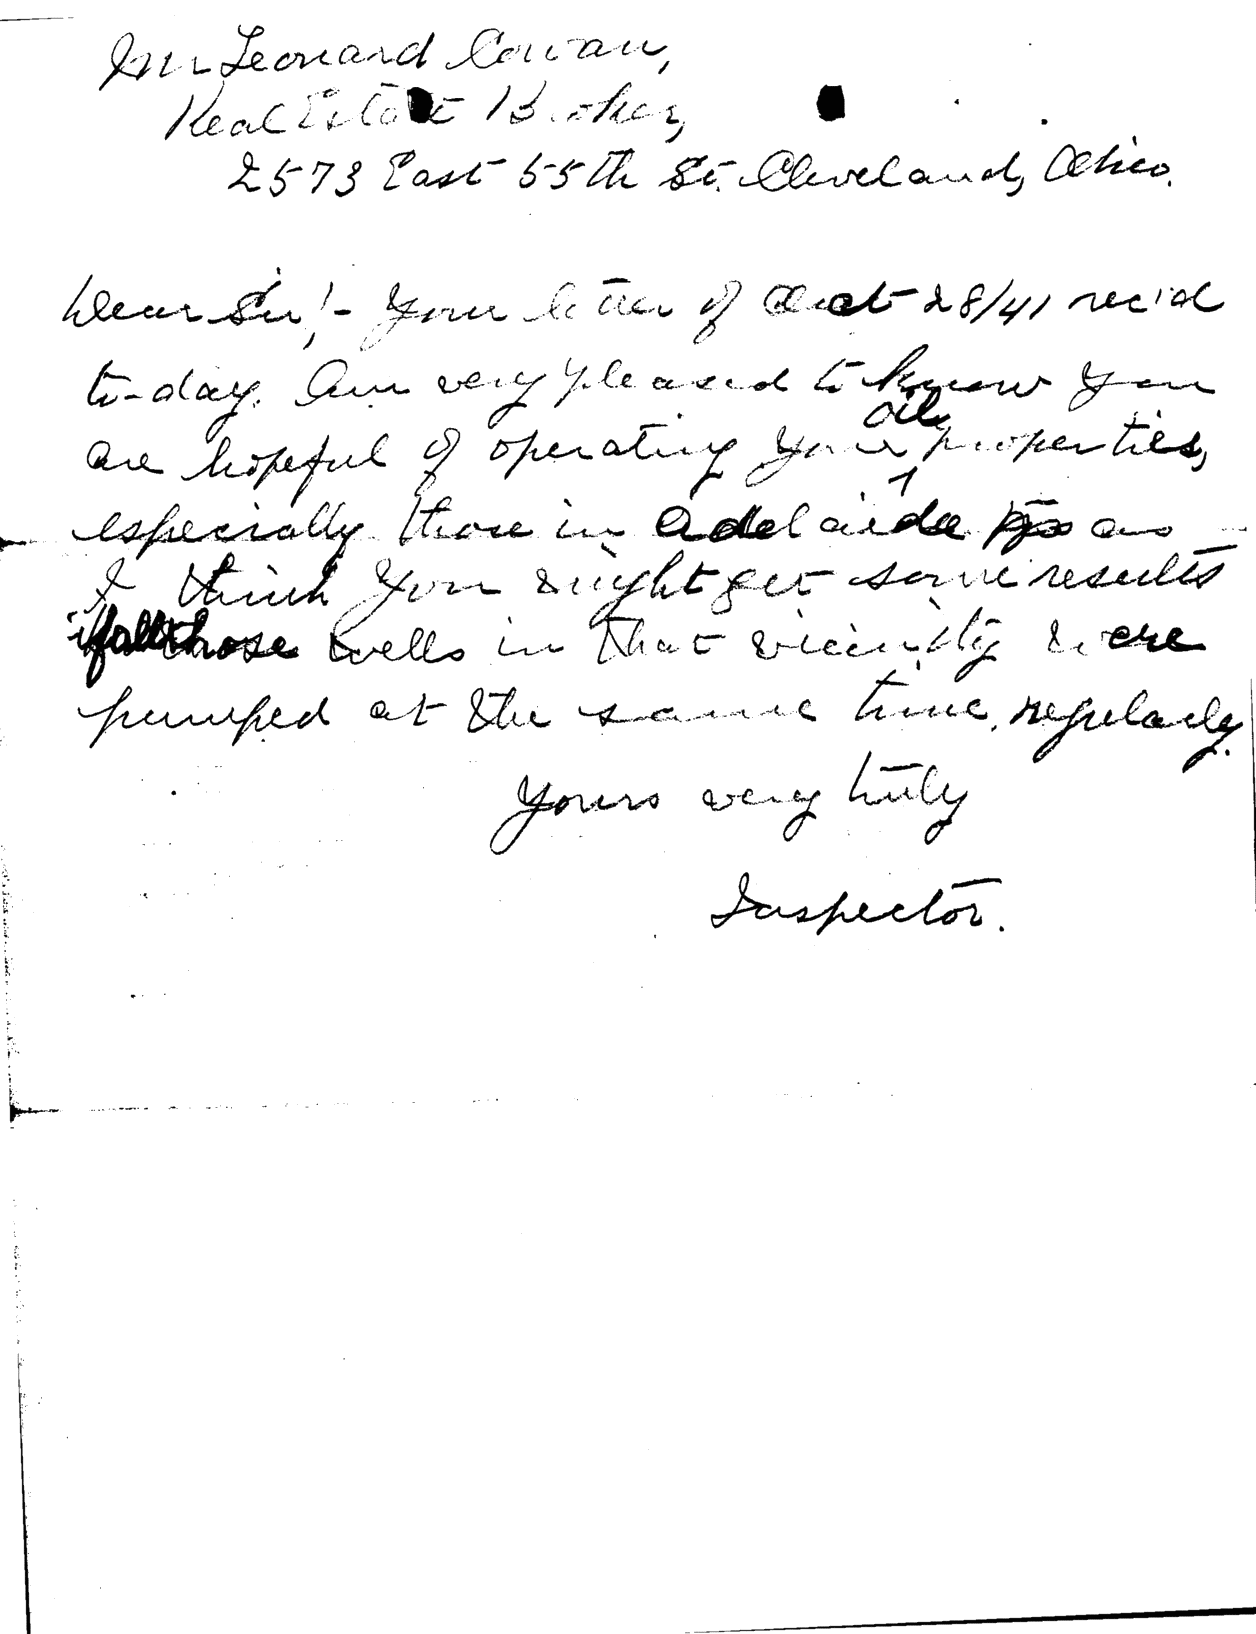 Mr Leonard Cowan,
Real Estate Broker,
2573 East 55th St. Cleveland, Ohio.
Dear Sir,!- Your letter of Oct 28/41 rec'd
to-day. Am very pleased to know you
are hopeful of operating your oil properties,
especially those in Adelaide tp as
I think you might get some results
if all those wells in that vicinity were
pumped at the same time, regularly.
Yours very truly
Inspector.